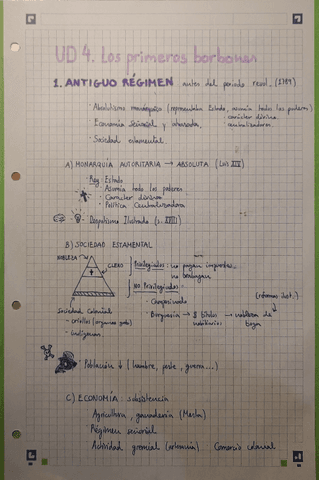 UD 4. Los primeros borbones
1. ANTIGUO RÉGIMEN antes del periodo revol. (1789)
· Absolutismo monárquico (representaba Estado, asumía todos los poderes)
carácter divino,
centralizadora.
· Economía señorial y
· Sociedad estamental.
A) MONARQUÍA AUTORITARIA → ABSOLUTA (Luis XIV)
· Rey: Estado
· Asumía todo los poderes
· Carácter divino
· Política Centralizadora
· Despotismo Ilustrado (s. XVIII)
B) SOCIEDAD ESTAMENTAL
NOBLEZA
CLERO
Privilegiados: no pagan impuestos
no trabajan
No Privilegiados:
· Campesinado
(reformas ilust.)
· Burguesía → $ títulos nobiliarios → nobleza de baja
Sociedad Colonial
· criollos
· indígenas.
Población ↓ (hambre, peste, guerra...)
C) ECONOMÍA: subsistencia
Agricultura, ganadería (Mesta)
· Régimen señorial
Actividad gremial (artesanía) Comercio colonial